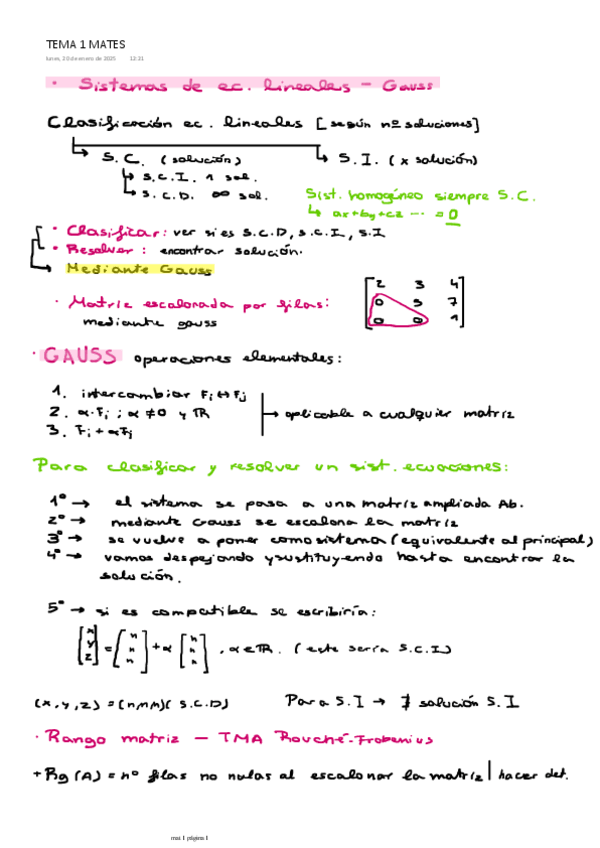 TEMA 1 MATES
lunes, 20 de enero de 2025 12:21
· Sistemas de ec. lineales - Gauss
Clasificación ec. lineales [según nº soluciones]
↳ S.C. (solución) ↳ S.I. (x solución)
↳ S.C.I. 1 sol.
↳ S.C.D. ∞ sol.
Sist. homogéneo siempre S.C.
↳ ax+by+cz ... = 0
· Clasificar: ver si es S.C.D, S.C.I, S.I
· Resolver: encontrar solución.
Mediante Gauss
· Matriz escalonada por filas:
mediante gauss
[2 3 4
0 5 7
0 0 1]
· GAUSS operaciones elementales:
1. intercambiar Fi ↔ Fj
2. α·Fi ; α ≠ 0 y ℝ → aplicable a cualquier matriz
3. Fi + αFj
Para clasificar y resolver un sist. ecuaciones:
1º → el sistema se pasa a una matriz ampliada Ab.
2º → mediante Gauss se escalona la matriz
3º → se vuelve a poner como sistema (equivalente al principal)
4º → vamos despejando y sustituyendo hasta encontrar la
solución.
5º → si es compatible se escribiría:
[x y z] = [n n n] + α [n n n], α ∈ ℝ. (este sería S.C.I)
(x, y, z) = (n,n,n) (S.C.D) Para S.I → ∄ solución S.I
· Rango matriz - TMA Rouché-Frobenius
+ Rg (A) = nº filas no nulas al escalonar la matriz | hacer det.
mat 1 página 1